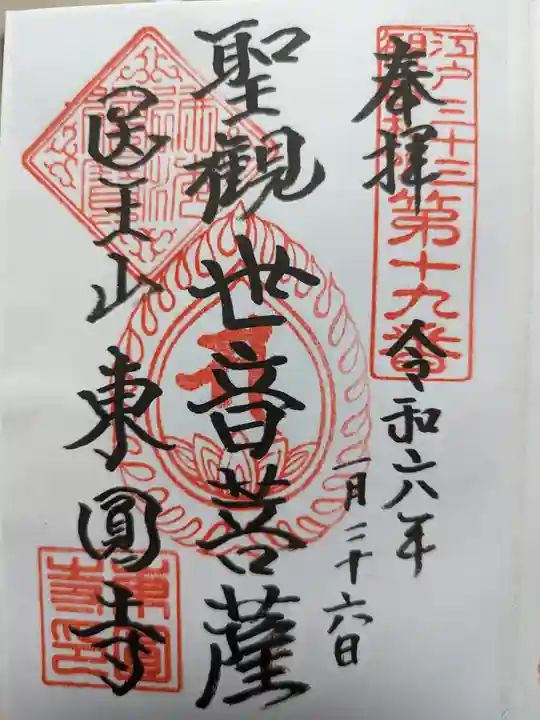 奉拝
江戸三十三
第十九番
令和六年
一月二十六日
聖観世音菩薩
医王山 東圓寺